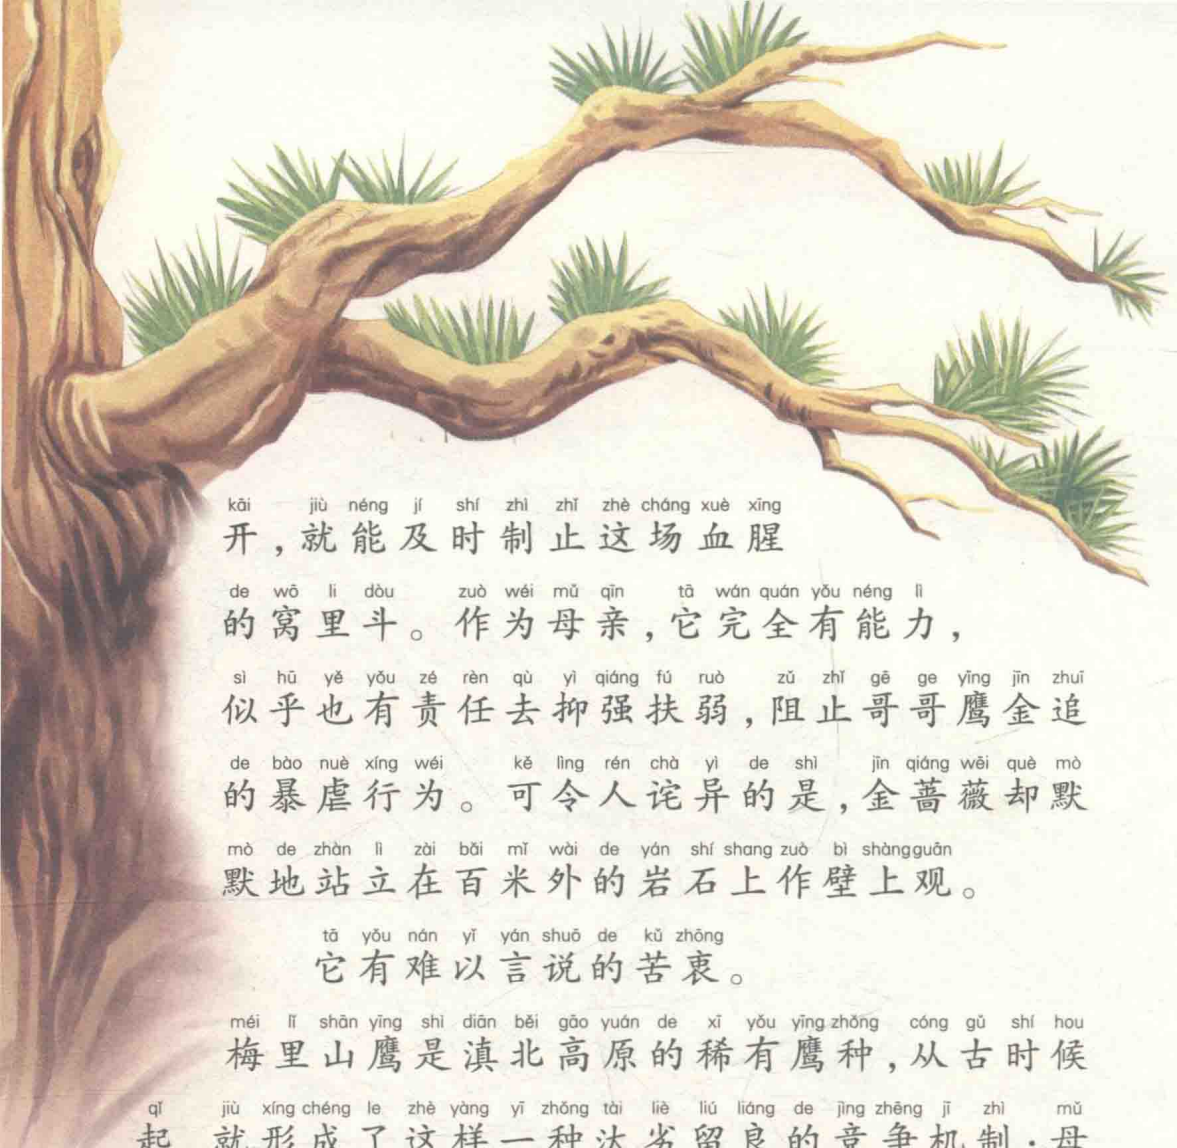 kāi jiù néng jí shí zhì zhǐ zhè cháng xuè xīng
开，就能及时制止这场血腥
de wō li dòu zuò wéi mǔ qīn tā wán quán yǒu néng lì
的窝里斗。作为母亲，它完全有能力，
sì hū yě yǒu zé rèn qù yì qiáng fú ruò zǔ zhǐ gē ge yīng jīn zhuī
似乎也有责任去抑强扶弱，阻止哥哥鹰金追
de bào nuè xíng wéi kě lìng rén chà yì de shì jīn qiáng wēi què mò
的暴虐行为。可令人诧异的是，金蔷薇却默
mò de zhàn lì zài bǎi mǐ wài de yán shí shang zuò bì shàng guān
默地站立在百米外的岩石上作壁上观。
tā yǒu nán yǐ yán shuō de kǔ zhōng
它有难以言说的苦衷。
méi lǐ shān yīng shì diān běi gāo yuán de xī yǒu yīng zhǒng cóng gǔ shí hou
梅里山鹰是滇北高原的稀有鹰种，从古时候
qǐ jiù xíng chéng le zhè yàng yī zhǒng tài liè liú liáng de jìng zhēng jī zhì mǔ
起 就形成了这样一种汰劣留良的竞争机制：母